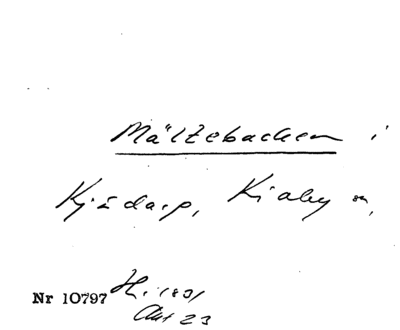 Mältebacken i
Kjüdarp, Kiaby sn,
Nr 10797 H. 1831
Akt 23